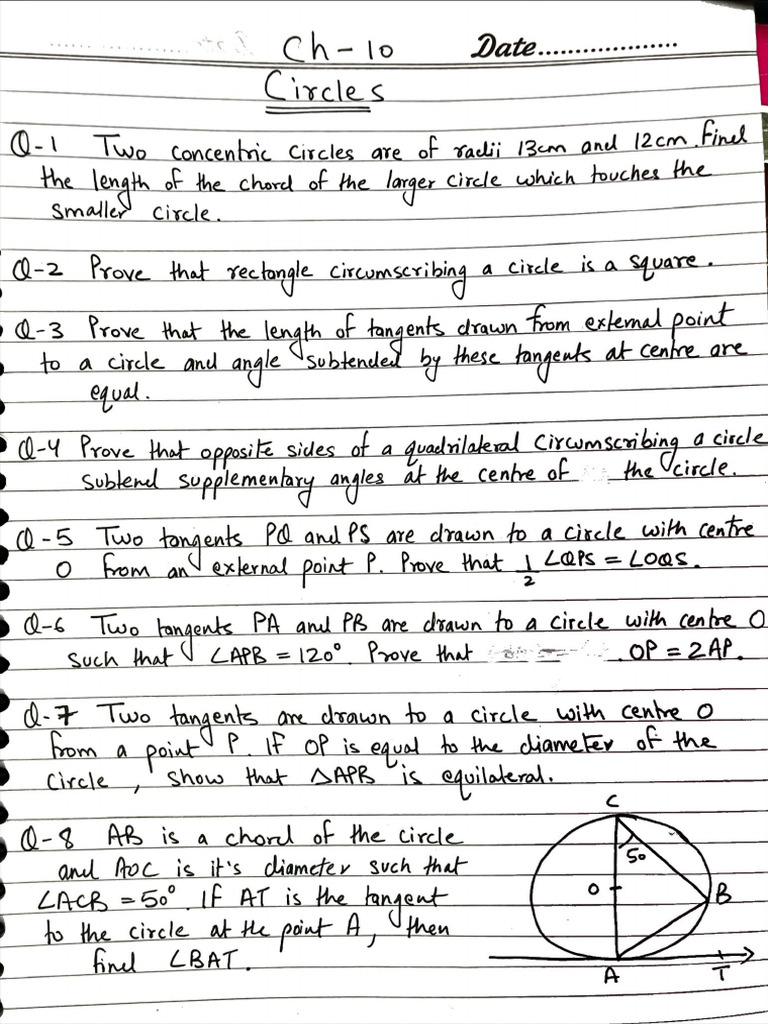 Ch-10 Date...................
Circles
Q-1 Two concentric circles are of radii 13cm and 12cm. Find
the length of the chord of the larger circle which touches the
smaller circle.
Q-2 Prove that rectangle circumscribing a circle is a square.
Q-3 Prove that the length of tangents drawn from external point
to a circle and angle subtended by these tangents at centre are
equal.
Q-4 Prove that opposite sides of a quadrilateral circumscribing a circle
subtend supplementary angles at the centre of the circle.
Q-5 Two tangents PQ and PS are drawn to a circle with centre
O from an external point P. Prove that 1/2 ∠QPS = ∠OQS.
Q-6 Two tangents PA and PB are drawn to a circle with centre O
such that ∠APB = 120°. Prove that OP = 2AP.
Q-7 Two tangents are drawn to a circle with centre O
from a point P. If OP is equal to the diameter of the
circle, show that △APB is equilateral.
Q-8 AB is a chord of the circle
and AOC is it's diameter such that
∠ACB = 50°. If AT is the tangent
to the circle at the point A, then
find ∠BAT.
C
50
O
B
A T